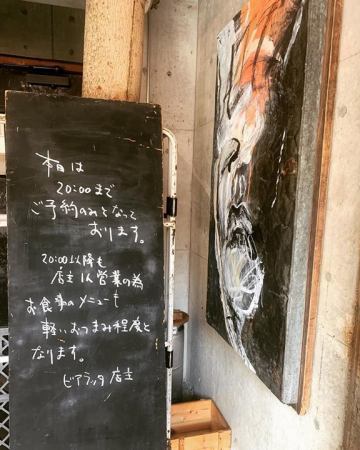 本日は
20:00まで
ご予約のみとなって
おります。
20:00以降も
店主1人営業の為
お食事のメニューも
軽いおつまみ程度と
なります。
ビアラッカ 店主